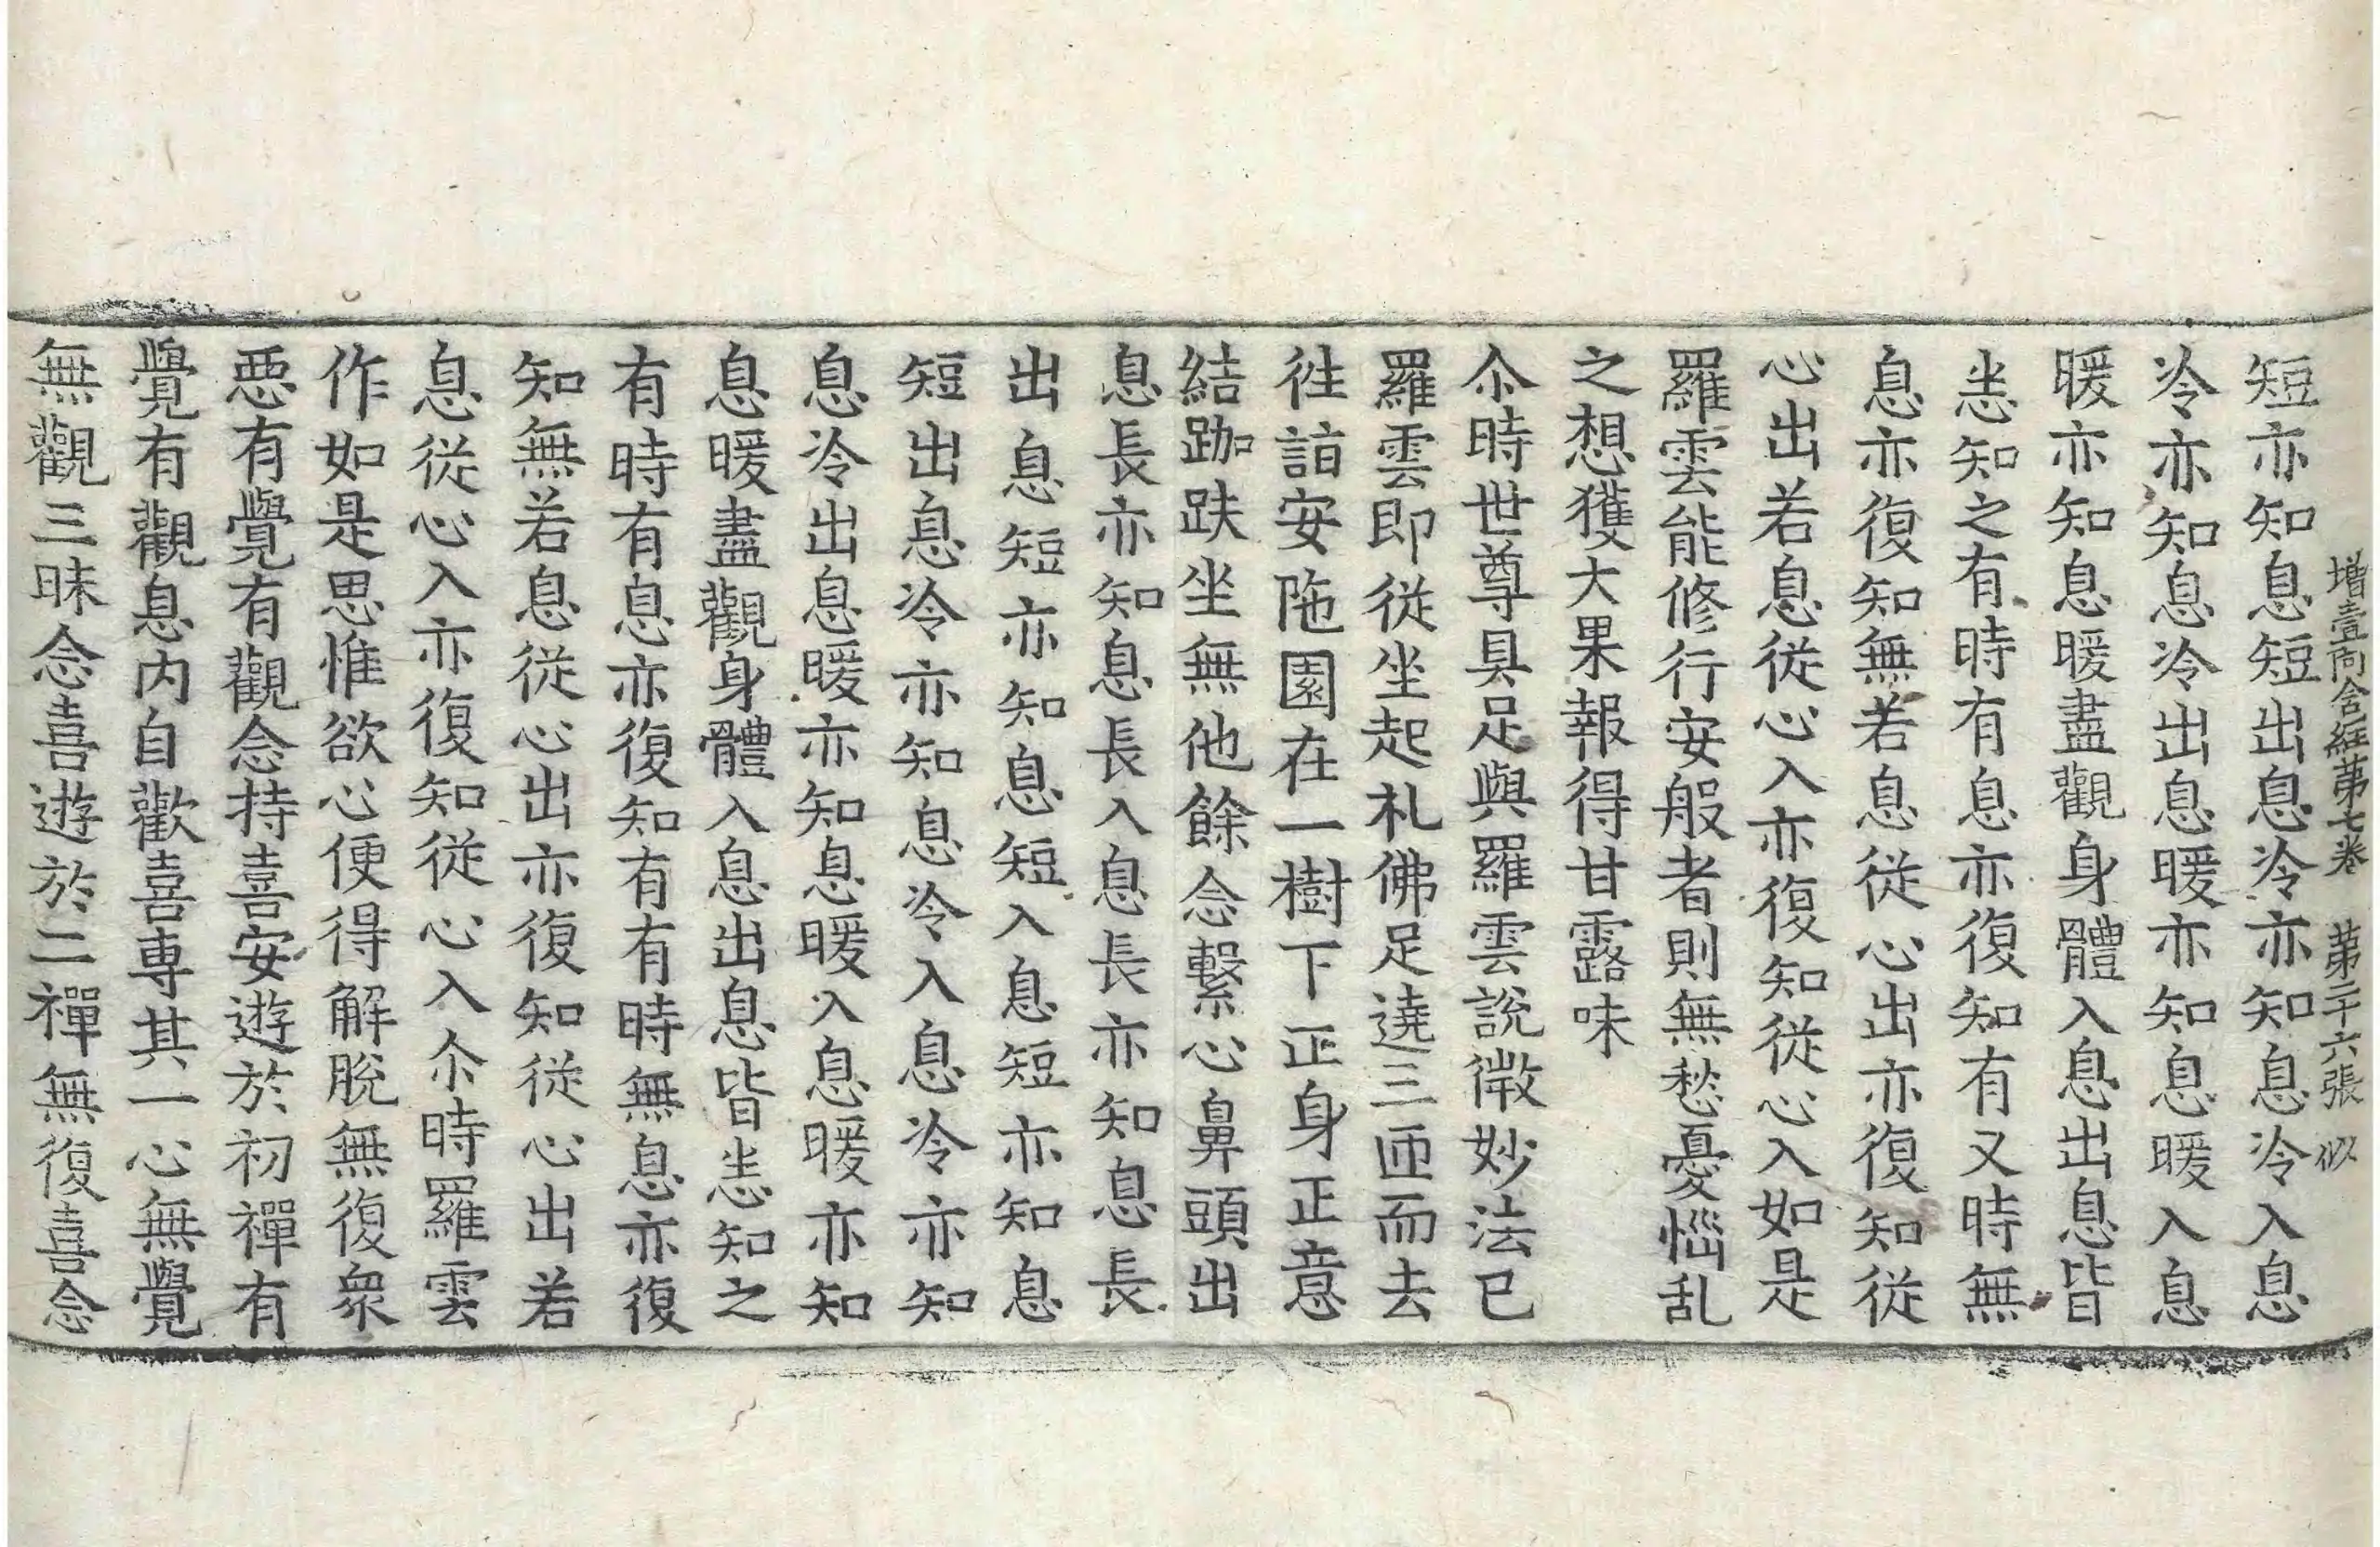 增壹阿含經第七卷 第二十六張 似
短亦知息短出息冷亦知息冷入息
冷亦知息冷出息暖亦知息暖入息
暖亦知息暖盡觀身體入息出息皆
悉知之有時有息亦復知有又時無
息亦復知無若息從心出亦復知從
心出若息從心入亦復知從心入如是
羅雲能修行安般者則無愁憂惱乱
之想獲大果報得甘露味
尒時世尊具足與羅雲說微妙法已
羅雲即從坐起礼佛足遶三匝而去
往詣安陁園在一樹下正身正意
結跏趺坐無他餘念繫心鼻頭出
息長亦知息長入息長亦知息長
出息短亦知息短入息短亦知息
短出息冷亦知息冷入息冷亦知
息冷出息暖亦知息暖入息暖亦知
息暖盡觀身體入息出息皆悉知之
有時有息亦復知有有時無息亦復
知無若息從心出亦復知從心出若
息從心入亦復知從心入尒時羅雲
作如是思惟欲心便得解脫無復衆
惡有覺有觀念持喜安遊於初禪有
覺有觀息内自歡喜專其一心無覺
無觀三昧念喜遊於二禪無復喜念